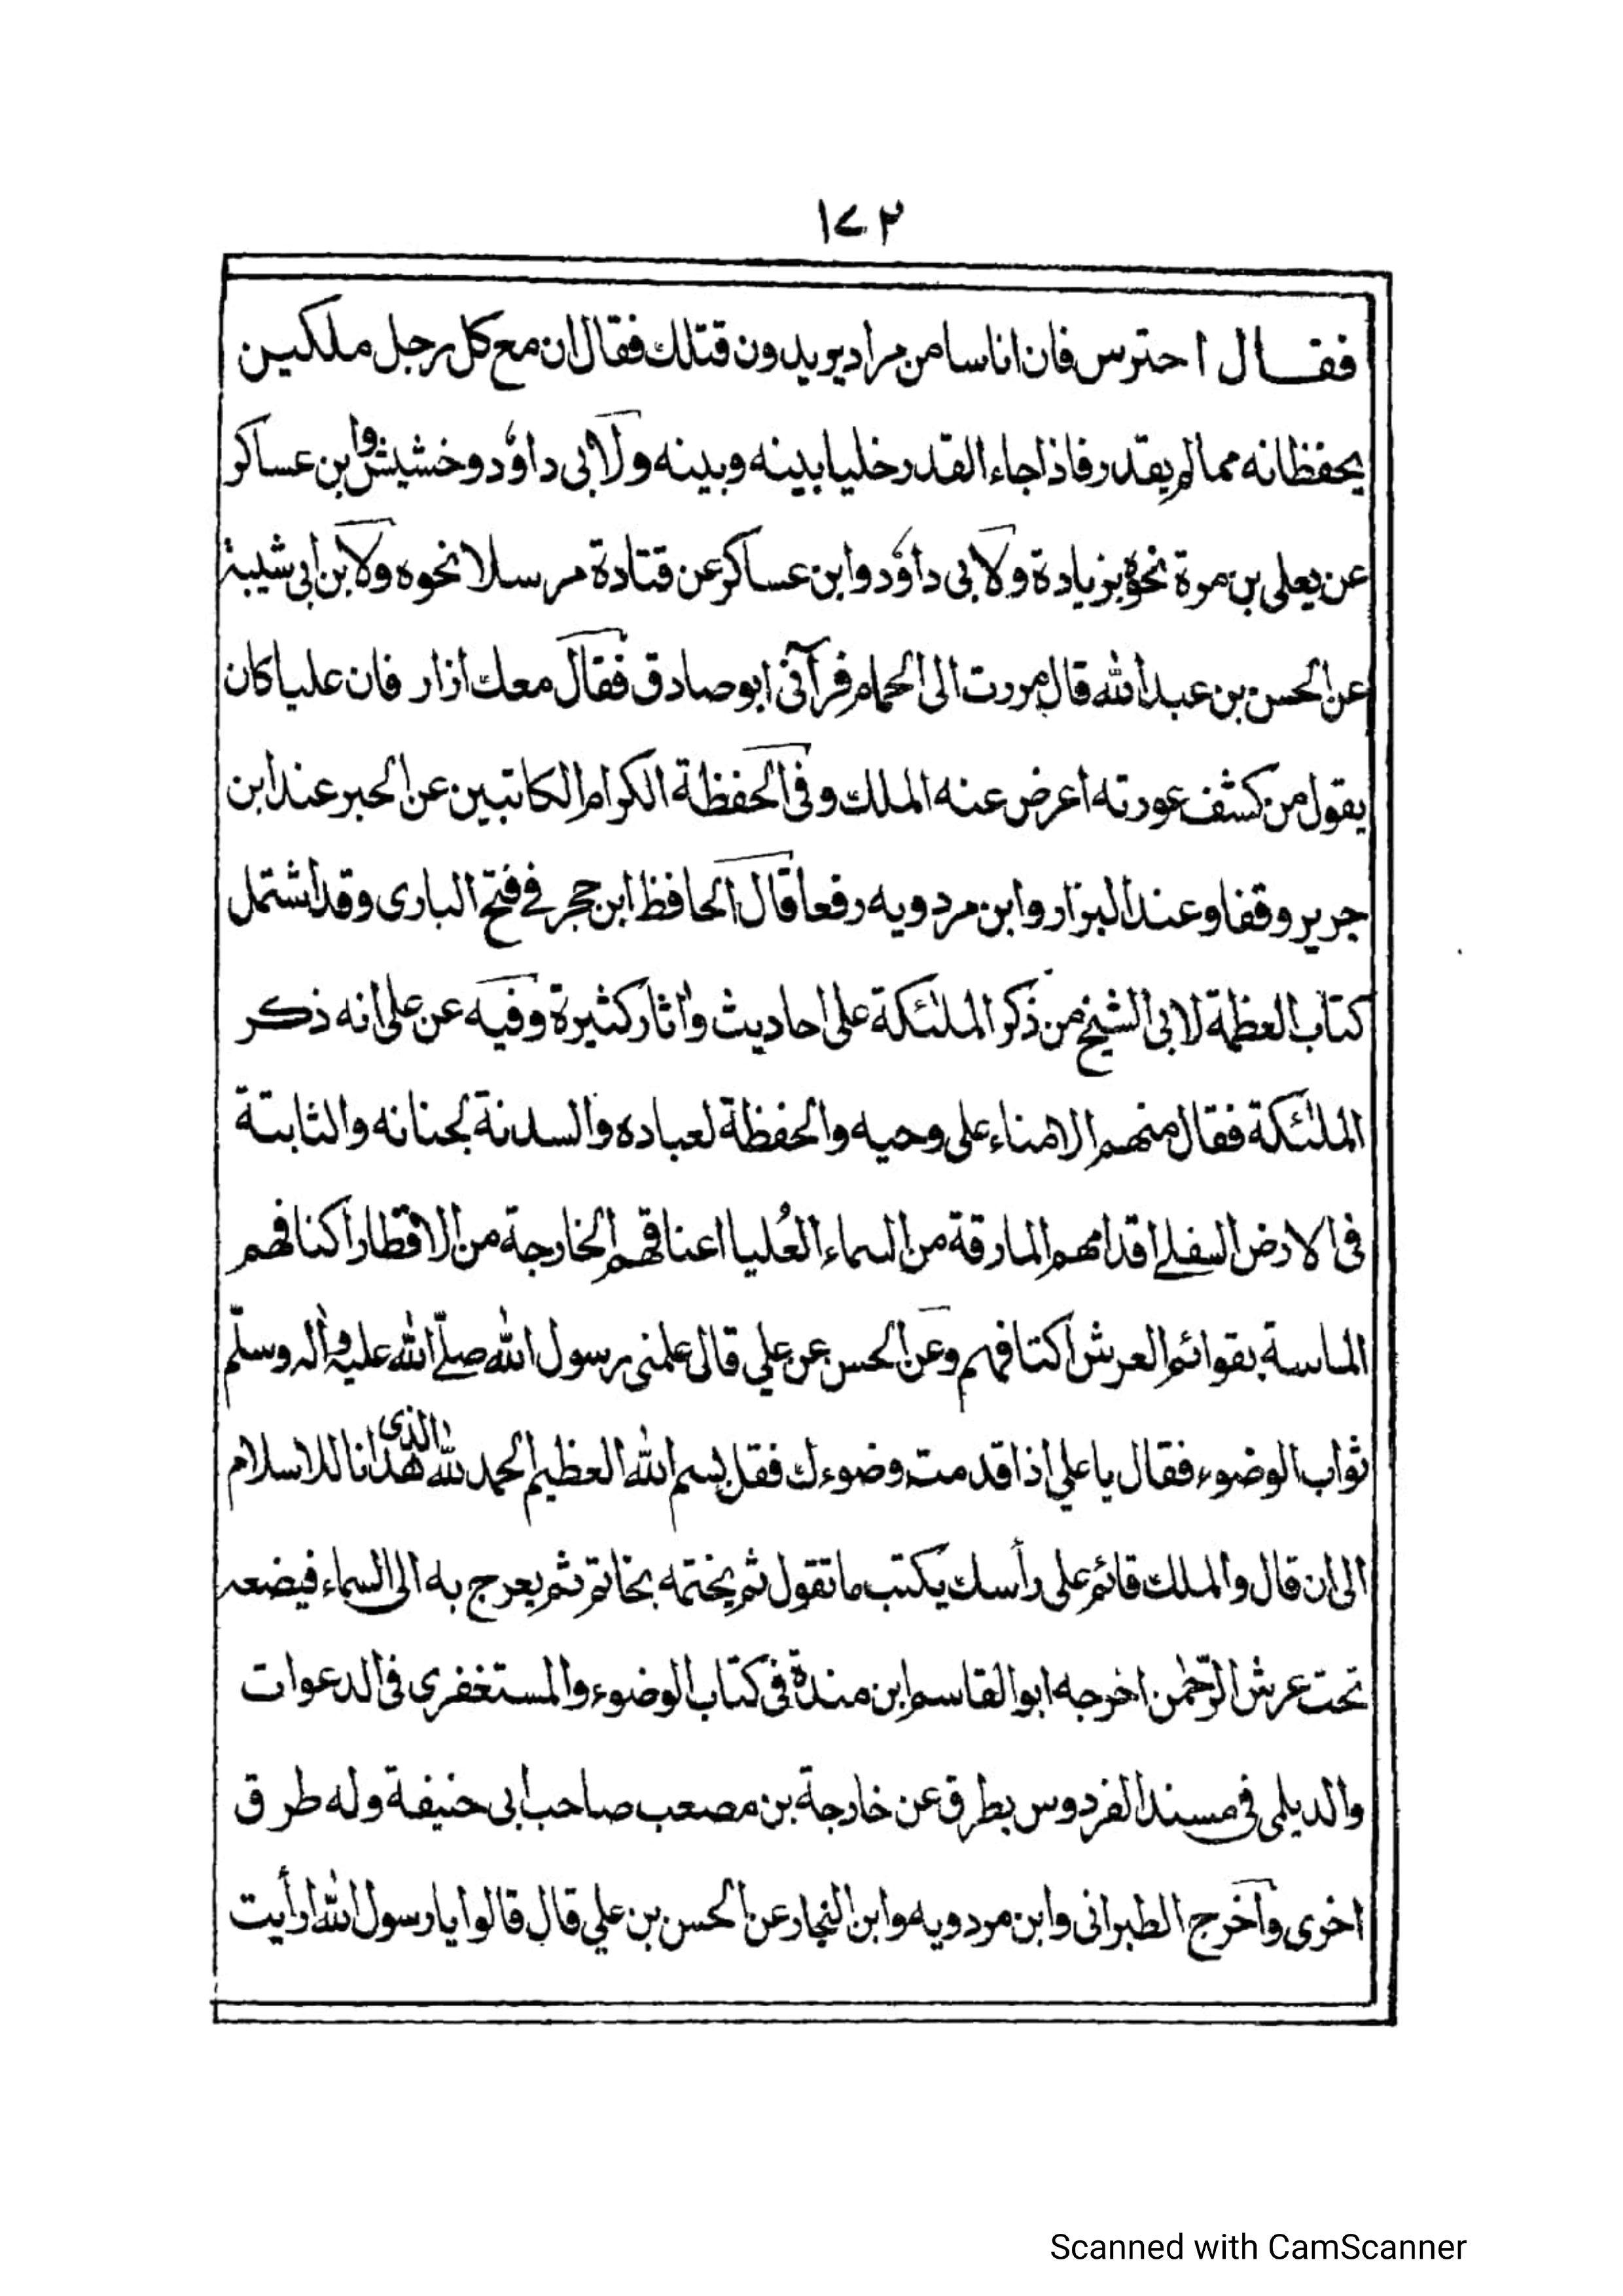 ١٧٢
فقــال احترس فان اناسا من مراد يريدون قتلك فقال ان مع كل رجل ملكين
يحفظانه مما لم يقدر فاذا جاء القدر خليا بينه وبينه ولابى داؤد وخشيش وابن عساكر
عن يعلى بن مرة نحوه بزيادة ولابى داؤد وابن عساكر عن قتادة مرسلا نحوه ولابن ابى شيبة
عن الحسن بن عبد الله قال مررت الى الحمام فرآنى ابو صادق فقال معك ازار فان عليا كان
يقول من كشف عورته اعرض عنه الملك وفى الحفظة الكرام الكاتبين عن الحبر عند ابن
جرير وقفا وعند البزار وابن مردويه رفعا قال الحافظ ابن حجر فى فتح البارى وقد اشتمل
كتاب العظمة لابى الشيخ من ذكر الملئكة على احاديث واثار كثيرة وفيه عن على انه ذكر
الملئكة فقال منهم الامناء على وحيه والحفظة لعباده والسدنة لجنانه والثابتة
فى الارض السفلے اقدامهم المارقة من السماء العُليا اعناقهم الخارجة من الاقطار اكنافهم
الماسة بقوائم العرش اكتافهم وعن الحسن عن علي قال علمنى رسول الله صلّے الله عليه واله وسلّم
ثواب الوضوء فقال يا علي اذا قدمت وضوءك فقل بسم الله العظيم الحمد لله الذى هدانا للاسلام
الى ان قال والملك قائم على رأسك يكتب ما تقول ثم يختمه بخاتم ثم يعرج به الى السماء فيضعه
تحت عرش الرّحمٰن اخرجه ابو القاسم ابن مندة فى كتاب الوضوء والمستغفرى فى الدعوات
والديلمى فى مسند الفردوس بطرق عن خارجة بن مصعب صاحب ابى حنيفة وله طرق
اخرى واخرج الطبرانى وابن مردويه وابن النجار عن الحسن بن علي قال قالوا يا رسول الله ارأيت
Scanned with CamScanner